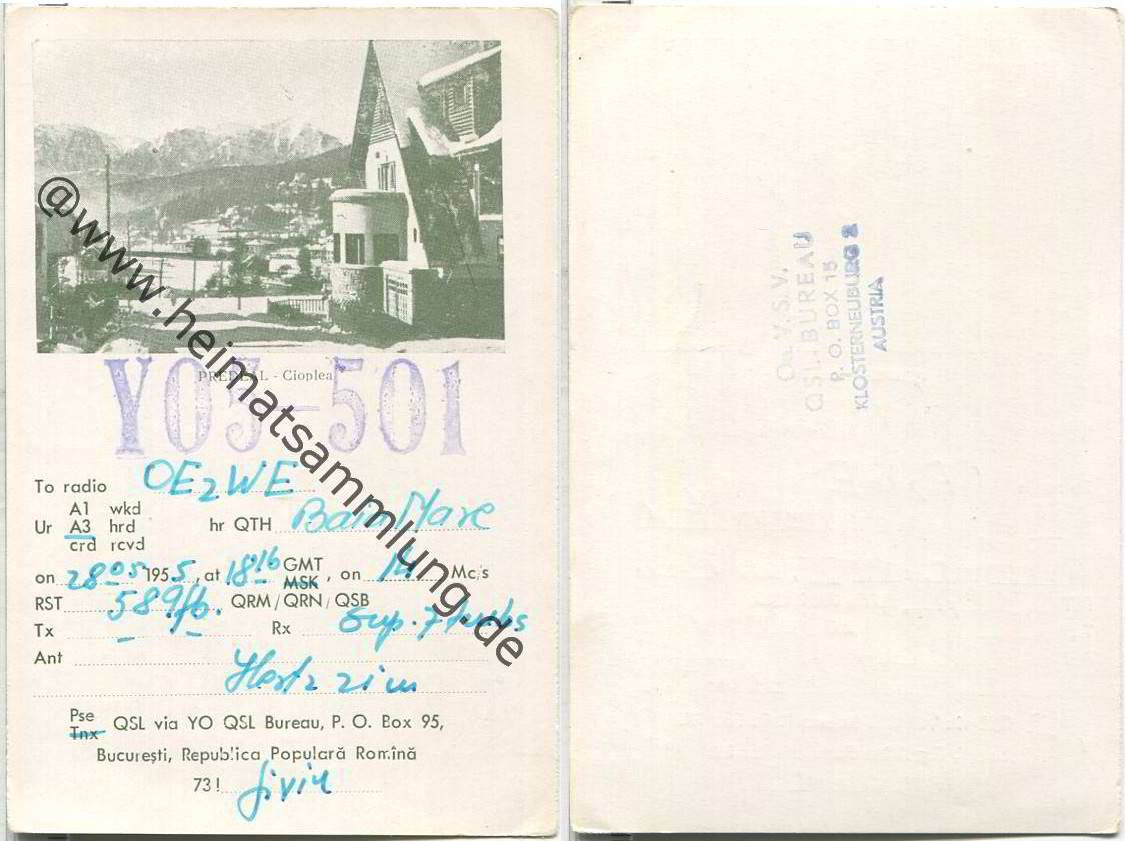 PREDEAL - Cioplea
YO5-501
To radio OE2WE
A1 wkd
Ur A3 hrd hr QTH Baia Mare
crd rcvd
on 28 05 1955, at 18 16 GMT MSK, on 14 Mc/s
RST 589 fb. QRM/QRN/QSB
Tx — — Rx Sup. 7 tubes
Ant Hertz zim
Pse
Tnx QSL via YO QSL Bureau, P. O. Box 95,
București, Republica Populară Romînă
73! Liviu
@www.heimatsammlung.de
Oe. V. S. V.
QSL BUREAU
P. O. BOX 15
KLOSTERNEUBURG 2
AUSTRIA